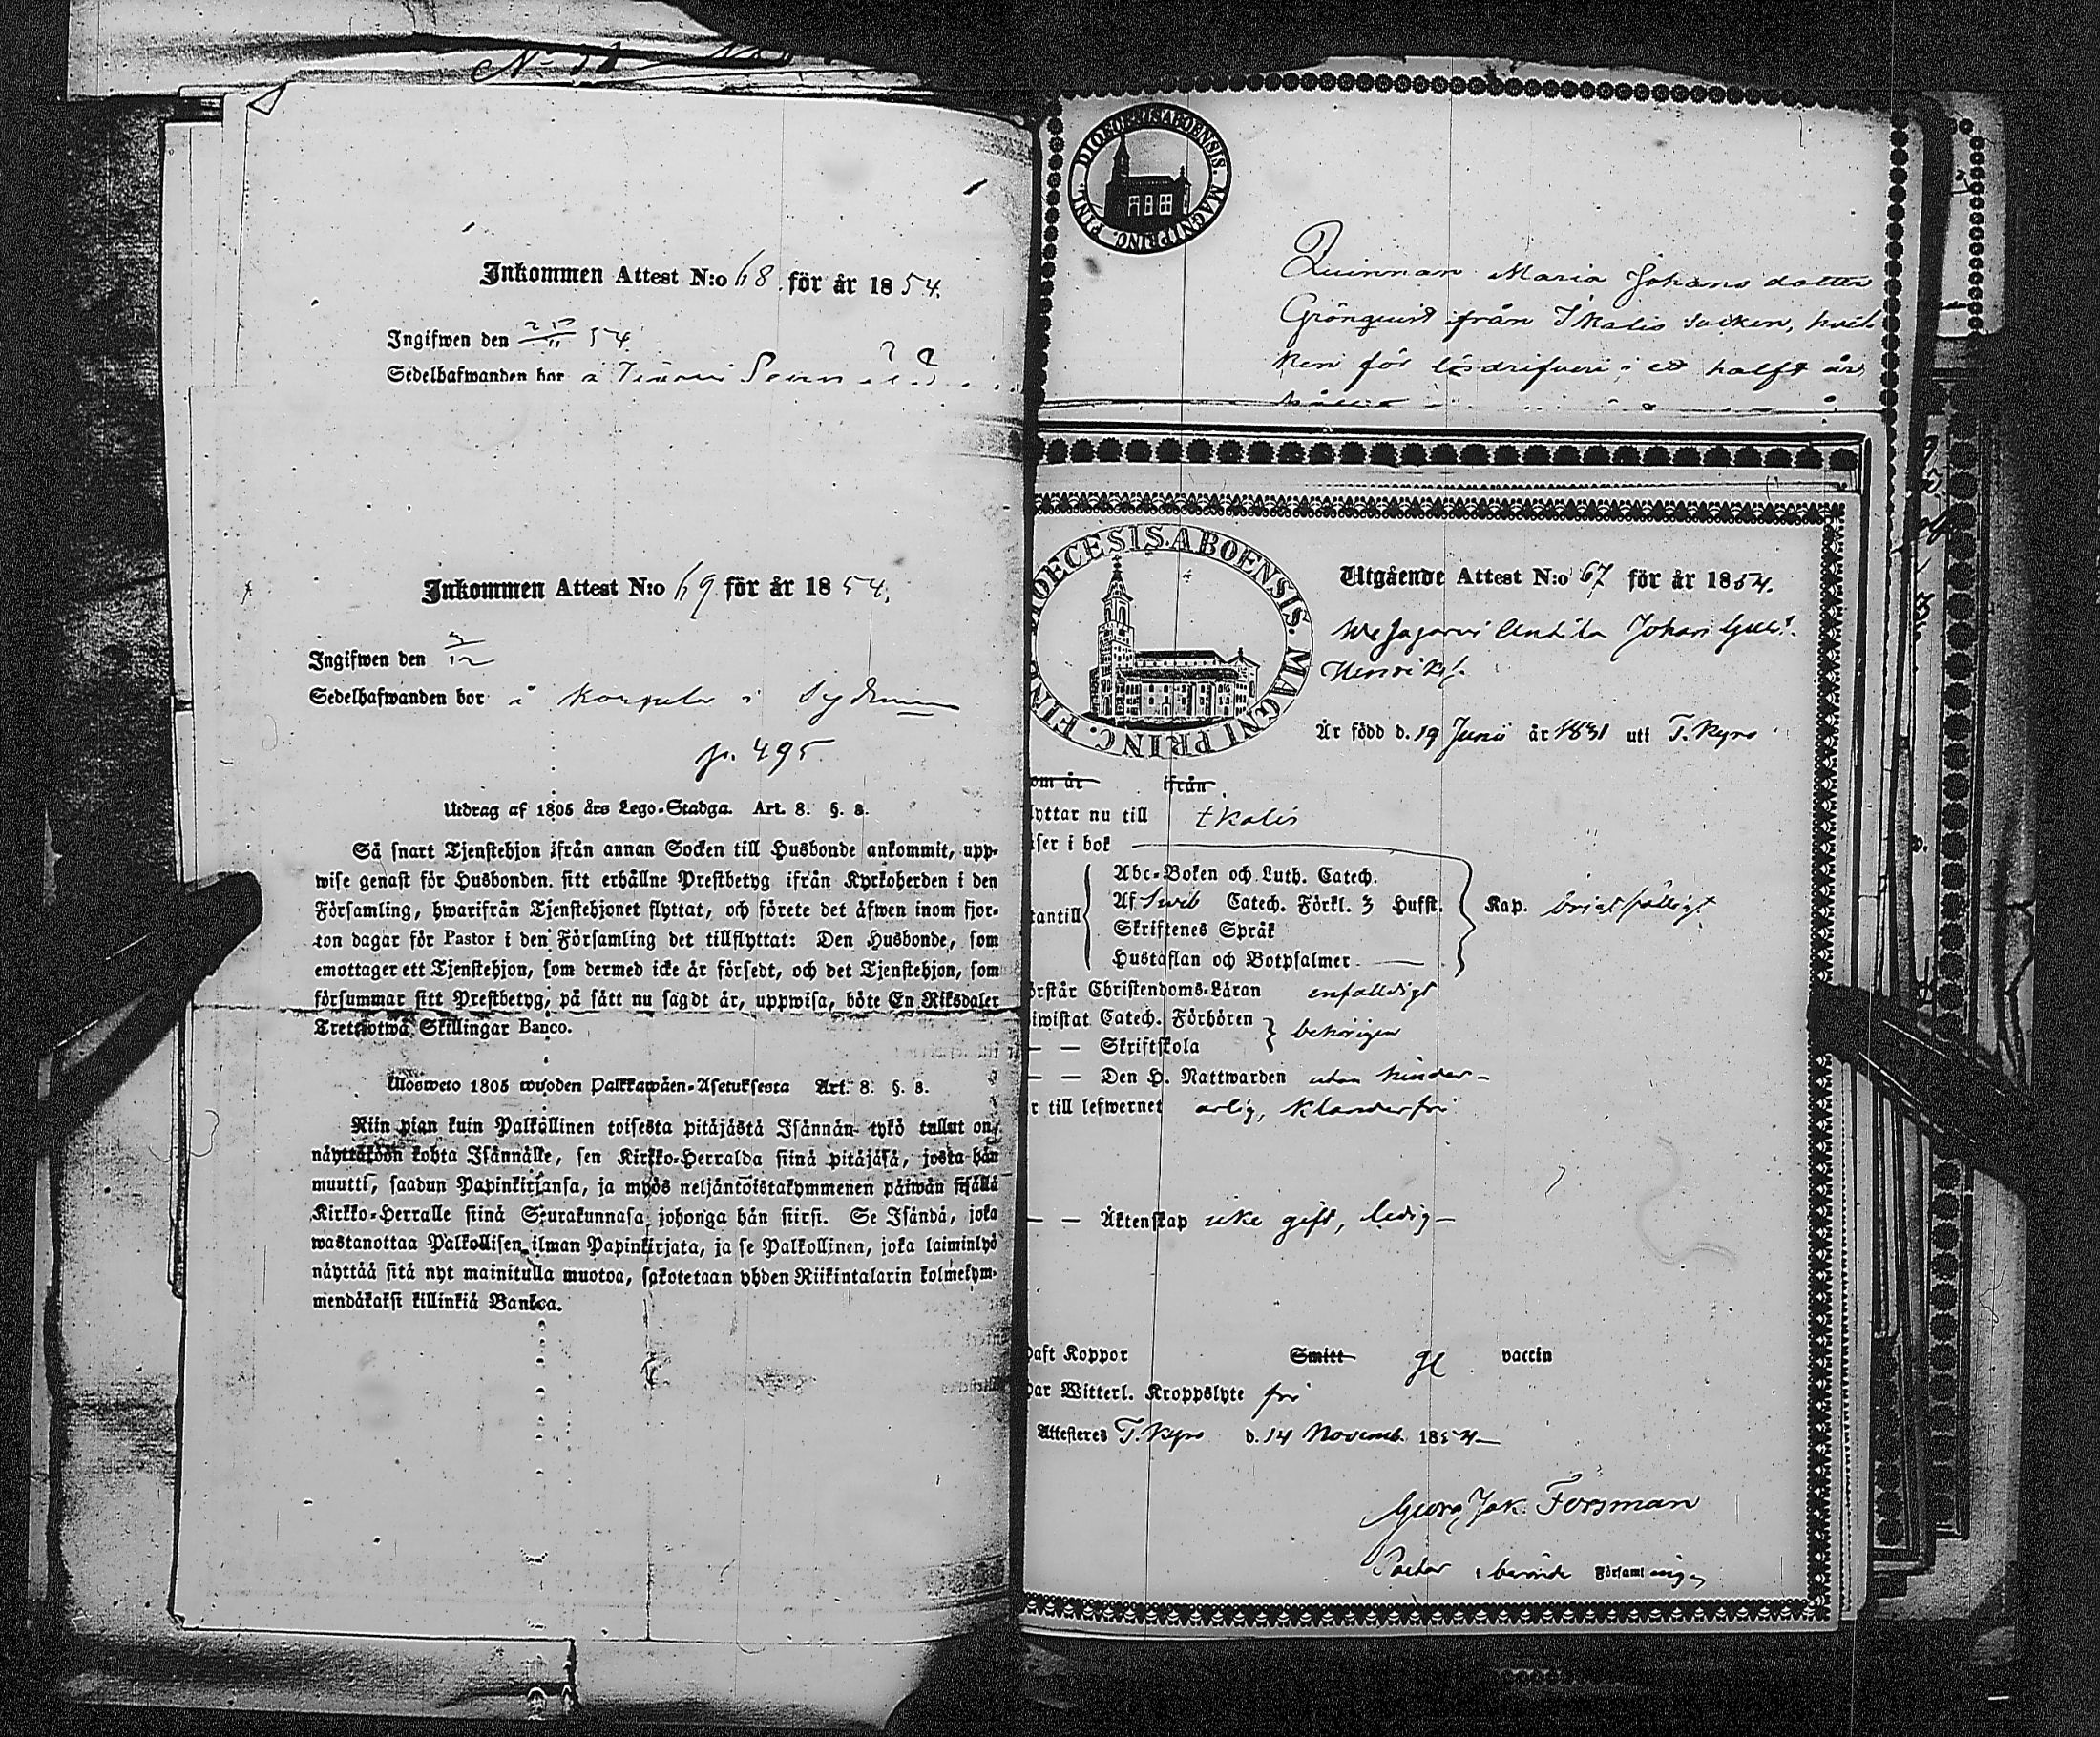 Inkommen Attest N:o 68. för år 1854.
Ingifwen den 54.
Sedelhafwanden bor å
Inkommen Attest N:o 69 för år 1854.
Ingifwen den
Sedelhafwanden bor å Korpela i
p. 495
Utdrag af 1805 års Lego-Stadga. Art. 8. §. 8.
Så snart Tjenstehjon ifrån annan Socken till Husbonde ankommit, upp-
wise genast för Husbonden sitt erhållne Prestbetyg ifrån Kyrkoherden i den
Församling, hwarifrån Tjenstehjonet flyttat, och förete det äfwen inom fjor-
ton dagar för Pastor i den Församling det tillflyttat: Den Husbonde, som
emottager ett Tjenstehjon, som dermed icke är försedt, och det Tjenstehjon, som
försummar sitt Prestbetyg, på sätt nu sagdt är, uppwisa, böte En Riksdaler
Trettiotwå Skillingar Banco.
Ulosweto 1805 wuoden Palkkawäen-Asetuksesta Art. 8. §. 8.
Niin pian kuin Palkollinen toisesta pitäjästä Isännän tykö tullut on,
näyttäköön kohta Isännälle, sen Kirkko-Herralda siinä pitäjäsä, josta hän
muutti, saadun Papinkirjansa, ja myös neljäntoistakymmenen päiwän sisällä
Kirkko-Herralle siinä Seurakunnasa, johonga hän siirsi. Se Isändä, joka
wastanottaa Palkollisen ilman Papinkirjata, ja se Palkollinen, joka laiminlyö
näyttää sitä nyt mainitulla muotoa, sakotetaan yhden Riikintalarin kolmekym-
mendäkaksi killinkiä Bankoa.
DIOECESIS ABOENSIS. MAGNI PRINC. FINL.
Quinnan Maria Johansdotter
Grönquist ifrån Ikalis Socken, hvil-
ken för lösdrifveri i ett halft år
DIOECESIS. ABOENSIS. MAGNI PRINC. FINL
Utgående Attest N:o 67 för år 1854.
Johan
Henriks.
Är född d. 19 Junii år 1831 uti T. Kyro
om år ifrån
lyttar nu till Ikalis
äser i bok
Abc-Boken och Luth. Catech.
Af Swib Catech. Förkl. 3 Hufst.
Skriftenes Språk
Hustaflan och Botpsalmer
tantill
Kap. bristfälligt
örstår Christendoms-Läran enfalldigt
iwistat Catech. Förhören
— — Skriftskola
behörigen
— — Den H. Nattwarden utan hinder
r till lefwernet ärlig, klanderfri
— — Äktenskap icke gift, ledig
aft Koppor Smitt vaccin
har Witterl. Kroppslyte fri
Attesteres T. Kyro d. 14 Novemb. 1854
Georg Jak. Forsman
Pastor i berörde Församlingen